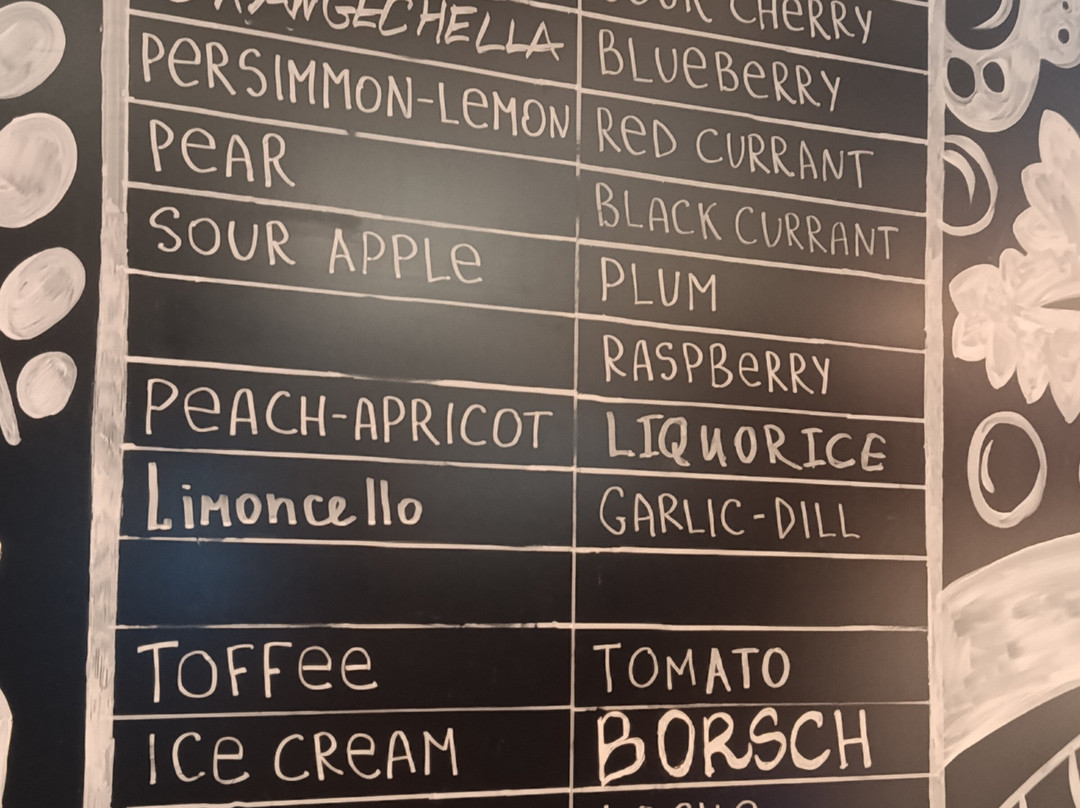 ORANGECHELLA
PERSIMMON-LEMON
PEAR
SOUR APPLE
PEACH-APRICOT
Limoncello
TOFFEE
ICE CREAM
SOUR CHERRY
BLUEBERRY
RED CURRANT
BLACK CURRANT
PLUM
RASPBERRY
LIQUORICE
GARLIC-DILL
TOMATO
BORSCH